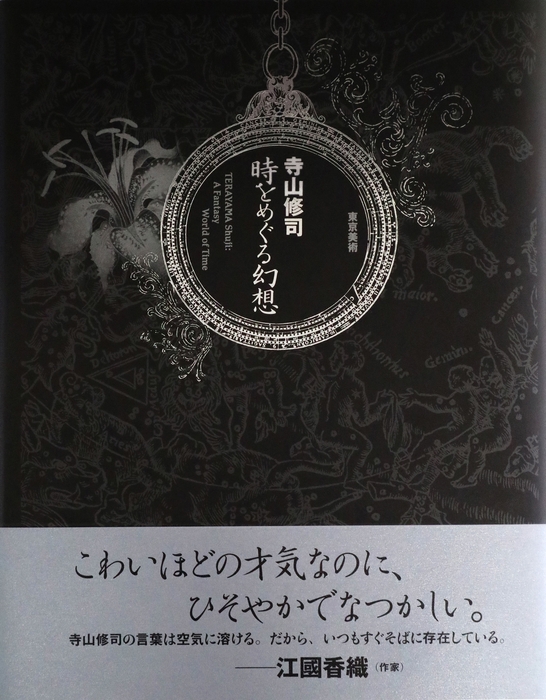 寺山修司
時をめぐる幻想
TERAYAMA Shuji:
A Fantasy
World of Time
東京美術
major.
Cancer.
Gemini
こわいほどの才気なのに、
ひそやかでなつかしい。
寺山修司の言葉は空気に溶ける。だから、いつもすぐそばに存在している。
——江國香織（作家）